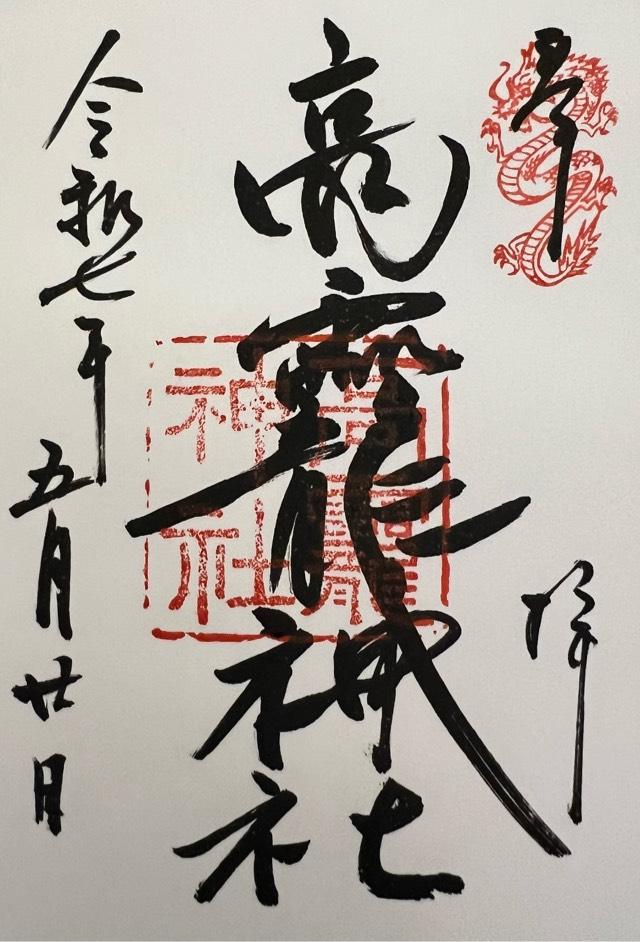 奉拝
高龗神社
高龗
神社
令和七年五月廿日